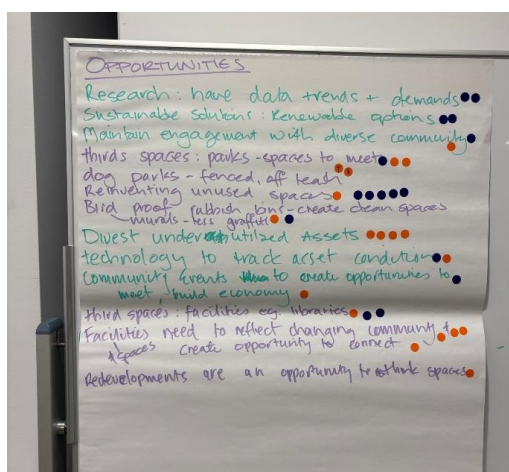 OPPORTUNITIES
Research: have data trends + demands
Sustainable Solutions: Renewable options
Maintain engagement with diverse community
thirds spaces: parks - spaces to meet
dog parks - fenced, off leash
Reinventing unused spaces
Bird proof rubbish bins - create clean spaces
murals - less graffiti
Divest underutilized Assets
technology to track asset condition
Community events to create opportunities to
meet, build economy
third spaces: facilities eg. libraries
Facilities need to reflect changing community +
+ spaces create opportunity to connect
Redevelopments are an opportunity to rethink spaces